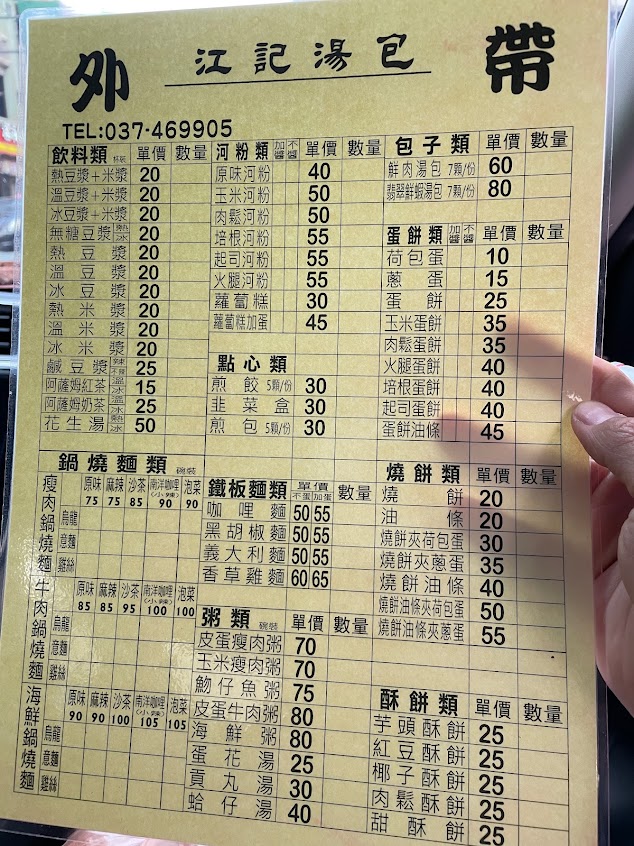 外 江記湯包 帶
TEL:037-469905
飲料類 杯裝 單價 數量
熱豆漿+米漿 20
溫豆漿+米漿 20
冰豆漿+米漿 20
無糖豆漿 熱 冰 20
熱豆漿 20
溫豆漿 20
冰豆漿 20
熱米漿 20
溫米漿 20
冰米漿 20
鹹豆漿 辣 不辣 25
阿薩姆紅茶 溫 冰 15
阿薩姆奶茶 溫 冰 25
花生湯 熱 冰 50
河粉類 加醬 不醬 單價 數量
原味河粉 40
玉米河粉 50
肉鬆河粉 50
培根河粉 55
起司河粉 55
火腿河粉 55
蘿蔔糕 30
蘿蔔糕加蛋 45
點心類
煎餃 5顆/份 30
韭菜盒 30
煎包 5顆/份 30
包子類 單價 數量
鮮肉湯包 7顆/份 60
翡翠鮮蝦湯包 7顆/份 80
蛋餅類 加醬 不醬 單價 數量
荷包蛋 10
蔥蛋 15
蛋餅 25
玉米蛋餅 35
肉鬆蛋餅 35
火腿蛋餅 40
培根蛋餅 40
起司蛋餅 40
蛋餅油條 45
鍋燒麵類 碗裝
瘦肉鍋燒麵 原味 75 麻辣 75 沙茶 85 南洋咖哩(小辣) 90 泡菜 90
烏龍
意麵
雞絲
牛肉鍋燒麵 原味 85 麻辣 85 沙茶 95 南洋咖哩(小辣) 100 泡菜 100
烏龍
意麵
雞絲
海鮮鍋燒麵 原味 90 麻辣 90 沙茶 100 南洋咖哩(小辣) 105 泡菜 105
烏龍
意麵
雞絲
鐵板麵類 單價 不蛋 加蛋 數量
咖哩麵 50 55
黑胡椒麵 50 55
義大利麵 50 55
香草雞麵 60 65
粥類 碗裝 單價 數量
皮蛋瘦肉粥 70
玉米瘦肉粥 70
魩仔魚粥 75
皮蛋牛肉粥 80
海鮮粥 80
蛋花湯 25
貢丸湯 30
蛤仔湯 40
燒餅類 單價 數量
燒餅 20
油條 20
燒餅夾荷包蛋 30
燒餅夾蔥蛋 35
燒餅油條 40
燒餅油條夾荷包蛋 50
燒餅油條夾蔥蛋 55
酥餅類 單價 數量
芋頭酥餅 25
紅豆酥餅 25
椰子酥餅 25
肉鬆酥餅 25
甜酥餅 25